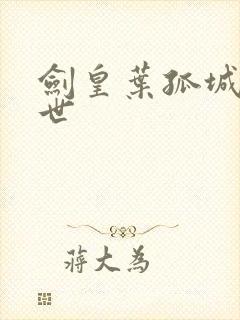 劍皇葉孤城
世
蔣大為